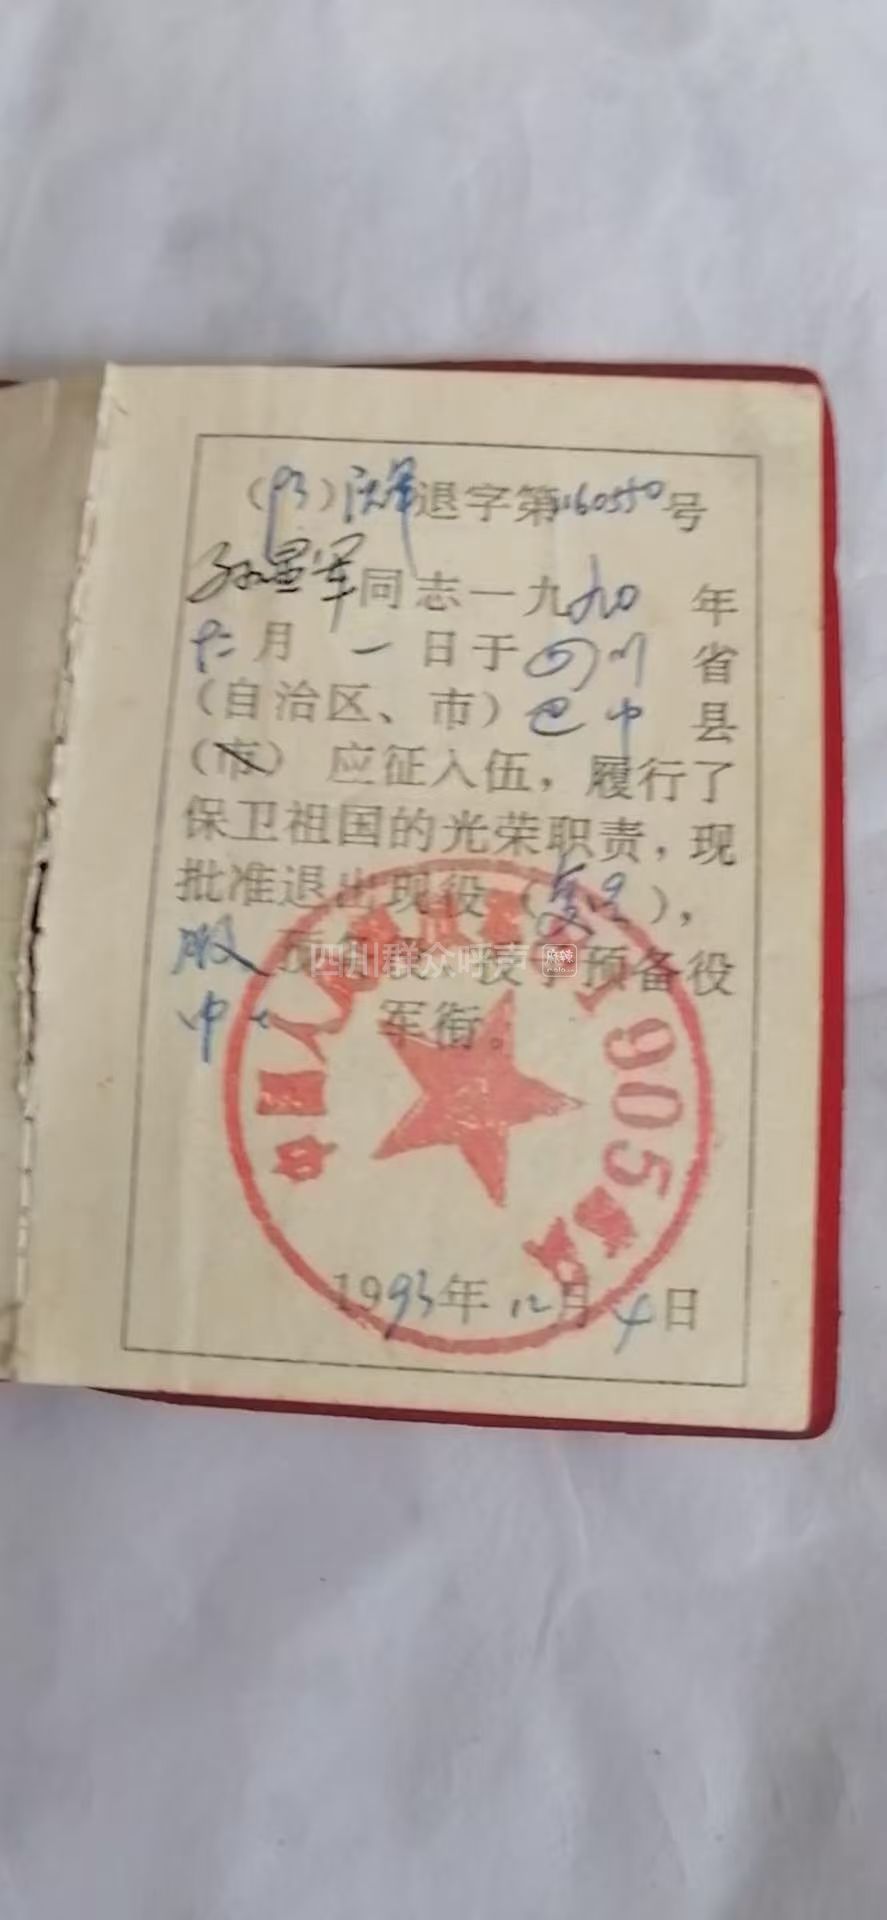 (93)沈军退字第160550号
孙显军同志一九九〇年
十二月一日于四川省
(自治区、市)巴中县
(市)应征入伍，履行了
保卫祖国的光荣职责，现
批准退出现役(复员)，
服预备役。授予预备役
中士军衔。
四川群众呼声 麻辣
中国人民
1905
1993年12月4日